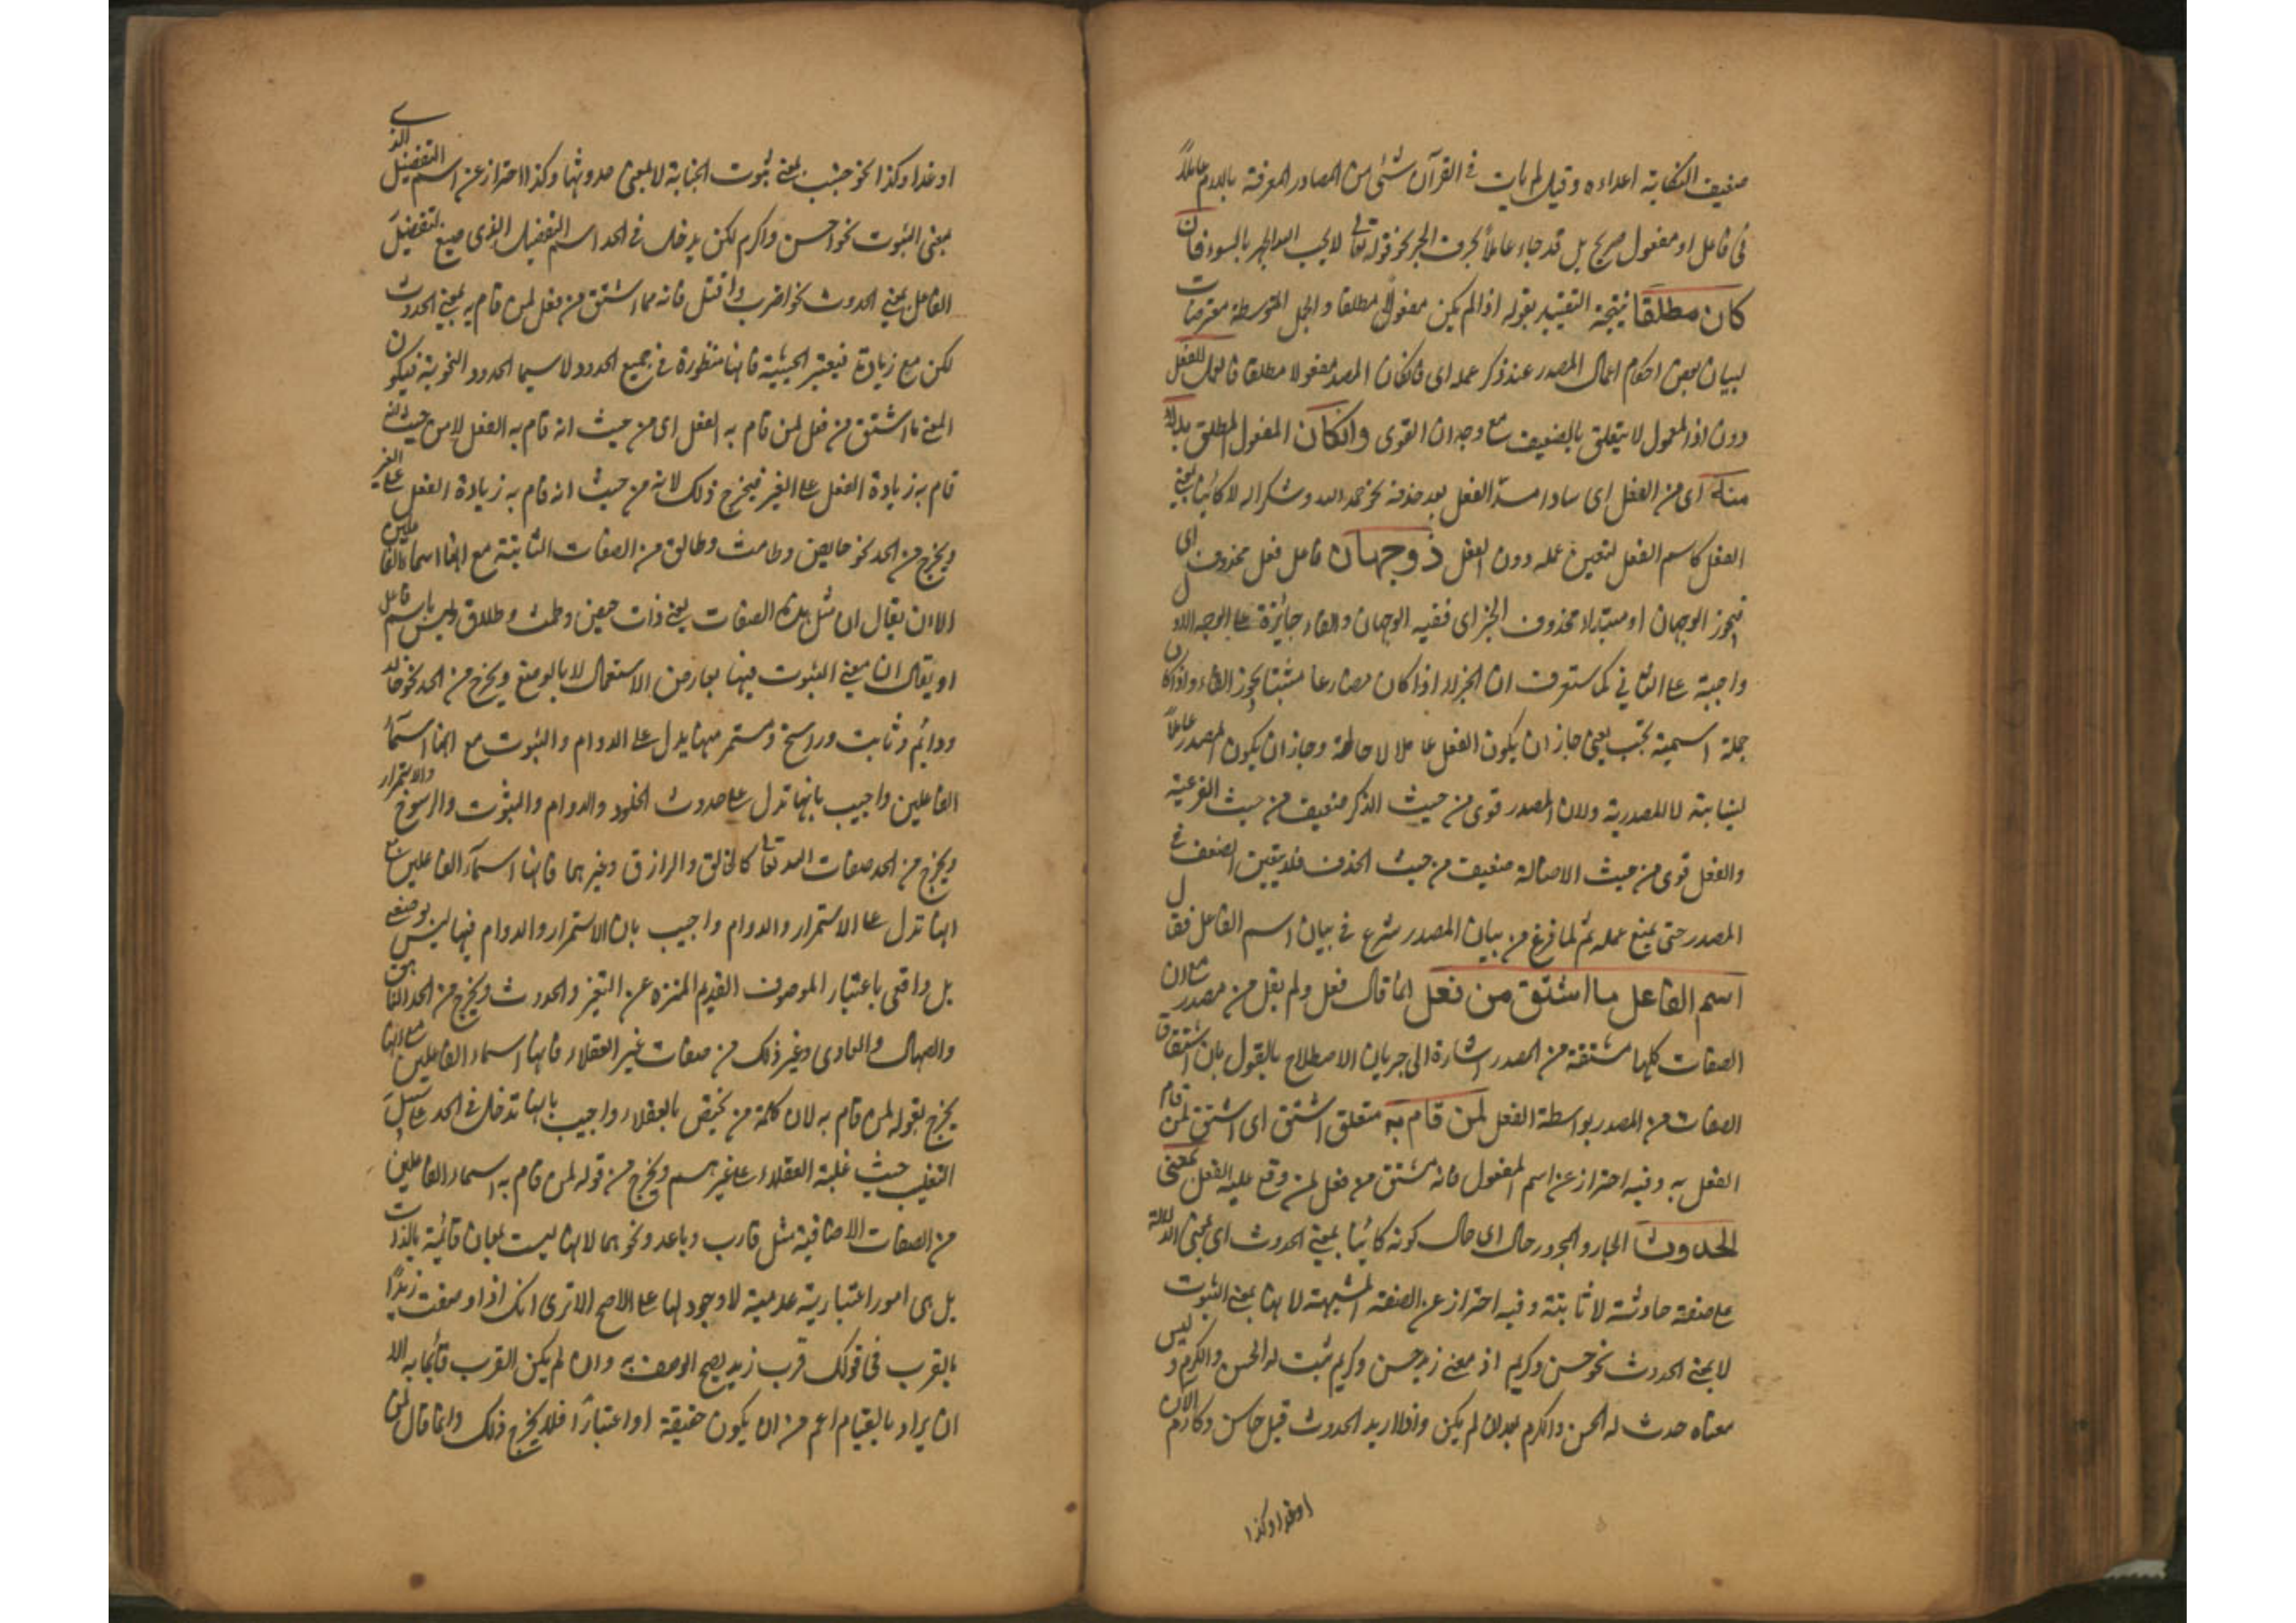 ضعيف النكاية اعداءه وقيل لم يات في القرآن شئ من المصادر المعرفة باللام عاملاً
في فاعل او مفعول صريح بل قد جاء عاملاً بحرف الجر نحو قوله تعالى لا يحب الله الجهر بالسوء فان
كان مطلقا نتيجة التقييد بقوله اذا لم يكن مفعولا مطلقا والجمل المتوسطة معترضات
لبيان بعض احكام اعمال المصدر عند ذكر عمله اى فان كان المصدر مفعولا مطلقا فالعمل للفعل
دون اذ المعمول لا يتعلق بالضعيف مع وجدان القوى وان كان المفعول المطلق بدلا
منه اى من الفعل اى سادا مسد الفعل بعد حذفه نحو حمدا لله وشكرا له لا كائنا بمعنى
الفعل كاسم الفعل لتعين عمله دون الفعل فوجهان فاعل فعل محذوف اى
فيجوز الوجهان او مبتداء محذوف الخبر اى ففيه الوجهان والفاء جائزة على الوجه الاول
واجبة على الثاني كما ستعرف ان الجزاء اذا كان مضارعا مثبتا يجوز الفاء واذا كان
جملة اسمية تجب يعني جاز ان يكون الفعل عاملا لاصالته وجاز ان يكون المصدر عاملاً
لنيابته لا للمصدرية ولان المصدر قوى من حيث الذكر ضعيف من حيث الفرعية
والفعل قوى من حيث الاصالة ضعيف من حيث الحذف فلا يتعين الضعف في
المصدر حتى يمنع عمله ثم لما فرغ من بيان المصدر شرع في بيان اسم الفاعل فقال
اسم الفاعل ما اشتق من فعل انما قال فعل ولم يقل من مصدر مع ان
الصفات كلها مشتقة من المصدر اشارة الى جريان الاصطلاح بالقول بان اشتقاق
الصفات من المصدر بواسطة الفعل لمن قام به متعلق اشتق اى اشتق لمن قام
الفعل به وفيه احتراز عن اسم المفعول فانه مشتق من فعل لمن وقع عليه الفعل بمعنى
الحدوث الجار والمجرور حال اى حال كونه كائنا بمعنى الحدوث اى بمعنى الدلالة
على صفة حادثة لا ثابتة وفيه احتراز عن الصفة المشبهة لانها بمعنى الثبوت
لا بمعنى الحدوث نحو حسن وكريم اذ معنى زيد حسن وكريم ثبت له الحسن والكرم وليس
معناه حدث له الحسن والكرم بعد ان لم يكن واذا اريد الحدوث قيل حاسن وكارم الآن
او غدا وكذا
او غدا وكذا نحو جنب بمعنى ثبوت الجنابة لا بمعنى حدوثها وكذا احتراز عن اسم التفضيل الذى
بمعنى الثبوت نحو احسن واكرم لكن يدخل في الحد اسم التفضيل الذى صيغ لتفضيل
الفاعل بمعنى الحدوث نحو اضرب واقتل فانه مما اشتق من فعل لمن قام به بمعنى الحدوث
لكن مع زيادة فيعتبر الحيثية فانها منظورة في جميع الحدود لا سيما الحدود النحوية فيكون
المعنى ما اشتق من فعل لمن قام به الفعل اى من حيث انه قام به الفعل لا من حيث انه
قام به زيادة الفعل على الغير فيخرج ذلك لانه من حيث انه قام به زيادة الفعل على الغير
ويخرج من الحد نحو حايض وطامث وطالق من الصفات الثابتة مع انها اسماء الفاعلين
الا ان يقال ان مثل هذه الصفات يعنى ذات حيض وطمث وطلاق وليس باسم فاعل
او يقال ان معنى الثبوت فيها بعارض الاستعمال لا بالوضع ويخرج من الحد نحو خالد
ودائم وثابت وراسخ ومستمر مما يدل على الدوام والثبوت مع انها اسماء
الفاعلين واجيب بانها تدل على حدوث الخلود والدوام والثبوت والرسوخ والاستمرار
ويخرج من الحد صفات الله تعالى كالخالق والرازق وغيرهما فانها اسماء الفاعلين مع
انها تدل على الاستمرار والدوام واجيب بان الاستمرار والدوام فيها ليس بوضعى
بل واقعى باعتبار الموصوف القديم المنزه عن التغير والحدوث ويخرج من الحد الناهق
والصهال والعاوى وغير ذلك من صفات غير العقلاء فانها اسماء الفاعلين مع انها
يخرج بقوله لمن قام به لان كلمة من يختص بالعقلاء واجيب بانها تدخل في الحد على سبيل
التغليب حيث غلبت العقلاء على غيرهم ويخرج من قوله لمن قام به اسماء الفاعلين
من الصفات الاضافية مثل قارب وباعد ونحوهما لانها ليست لمعان قائمة بالذات
بل هى امور اعتبارية عدمية لا وجود لها على الاصح الا ترى انك اذا وصفت زيدًا
بالقرب في قولك قرب زيد يصح الوصف به وان لم يكن القرب قائما به الا
ان يراد بالقيام اعم من ان يكون حقيقة او اعتبارًا فلا يخرج ذلك وانما قال لمن